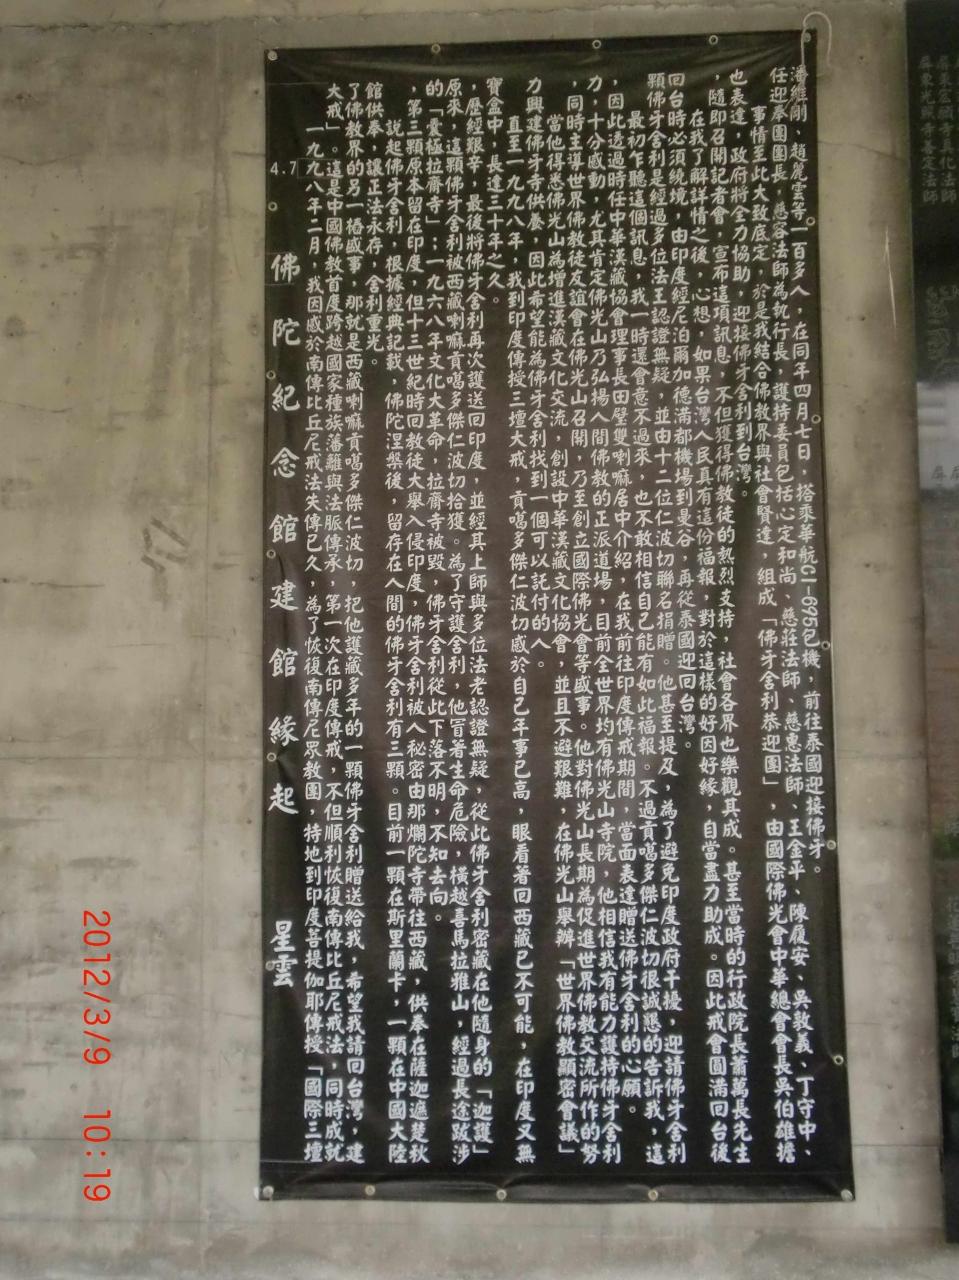 4.7
佛陀紀念館建館緣起　星雲
一九九八年二月，我因感於南傳比丘尼戒法失傳已久，為了恢復南傳尼眾教團，特地到印度菩提伽耶傳授「國際三壇
大戒」。這是中國佛教首度跨越國家種族藩籬與法脈傳承，第一次在印度傳戒，不但順利恢復南傳比丘尼戒法，同時成就
了佛教界的另一樁盛事，那就是西藏喇嘛貢噶多傑仁波切，把他護藏多年的一顆佛牙舍利贈送給我，希望我請回台灣，建
館供奉，讓正法永存，舍利重光。
說起佛牙舍利，根據經典記載，佛陀涅槃後，留存在人間的佛牙舍利有三顆。目前一顆在斯里蘭卡，一顆在中國大陸
，第三顆原本留在印度，但十三世紀時回教徒大舉入侵印度，佛牙舍利被人秘密由那爛陀寺帶往西藏，供奉在薩迦遮楚秋
的「囊極拉齋寺」；一九六八年文化大革命，拉齋寺被毀，佛牙舍利從此下落不明，不知去向。
原來，這顆佛牙舍利被西藏喇嘛貢噶多傑仁波切拾獲。為了守護舍利，他冒著生命危險，橫越喜馬拉雅山，經過長途跋涉
，歷經艱辛，最後將佛牙舍利再次護送回印度，並經其上師與多位法老認證無疑，從此佛牙舍利密藏在他隨身的「迦護」
寶盒中，長達三十年之久。
直至一九九八年，我到印度傳授三壇大戒，貢噶多傑仁波切感於自己年事已高，眼看著回西藏已不可能，在印度又無
力興建佛牙寺供養，因此希望能為佛牙舍利找到一個可以託付的人。
當他得悉佛光山為增進漢藏文化交流，創設中華漢藏文化協會，並且不避艱難，在佛光山舉辦「世界佛教顯密會議」
，同時主導世界佛教徒友誼會在佛光山召開，乃至創立國際佛光會等盛事。他對佛光山長期為促進世界佛教交流所作的努
力，十分感動，尤其肯定佛光山乃弘揚人間佛教的正派道場，目前全世界均有佛光山寺院，他相信我有能力護持佛牙舍利
，因此透過時任中華漢藏協會理事長田璧雙喇嘛居中介紹，在我前往印度傳戒期間，當面表達贈送佛牙舍利的心願。
最初乍聽這個訊息，我一時還會意不過來，也不敢相信自己能有如此福報。不過貢噶多傑仁波切很誠懇的告訴我，這
顆佛牙舍利是經過多位法王認證無疑，並由十二位仁波切聯名捐贈。他甚至提及，為了避免印度政府干擾，迎請佛牙舍利
回台時必須繞境，由印度經尼泊爾加德滿都機場到曼谷，再從泰國迎回台灣。
在我了解詳情之後，心想，如果台灣人民真有這份福報，對於這樣的好因好緣，自當盡力助成。因此戒會圓滿回台後
，隨即召開記者會，宣布這項訊息，不但獲得佛教徒的熱烈支持，社會各界也樂觀其成。甚至當時的行政院長蕭萬長先生
也表達，政府將全力協助，迎接佛牙舍利到台灣。
事情至此大致底定，於是我結合佛教界與社會賢達，組成「佛牙舍利恭迎團」，由國際佛光會中華總會會長吳伯雄擔
任迎奉團團長，慈容法師為執行長，護持委員包括心定和尚、慈莊法師、慈惠法師、王金平、陳履安、吳敦義、丁守中、
潘維剛、趙麗雲等一百多人，在同年四月七日，搭乘華航CI-695包機，前往泰國迎接佛牙。
2012/3/9 10:19